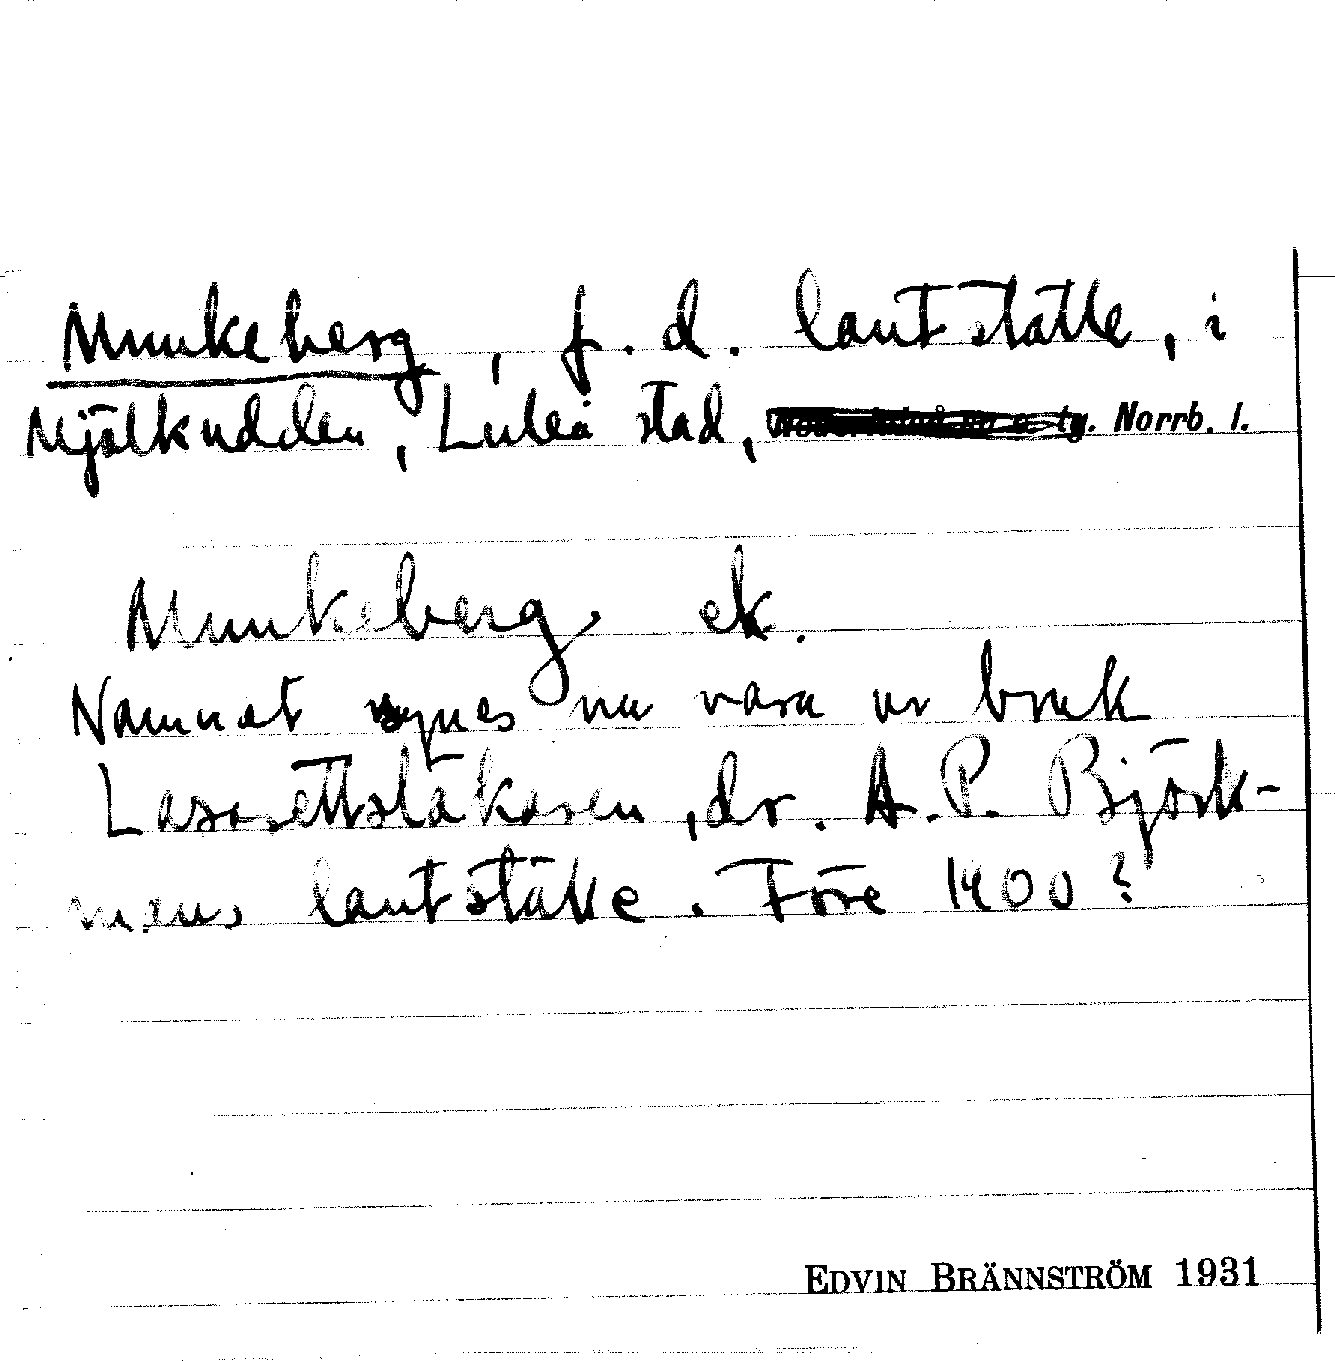 Munkeberg, f. d. lantställe, i
Mjölkudden, Luleå stad, Norrb. l.
Munkeberg ek.
Namnet synes nu vara ur bruk
Lasarettsläkaren, dr. A. P. Björk-
mans lantställe. Före 1900?
EDVIN BRÄNNSTRÖM 1931